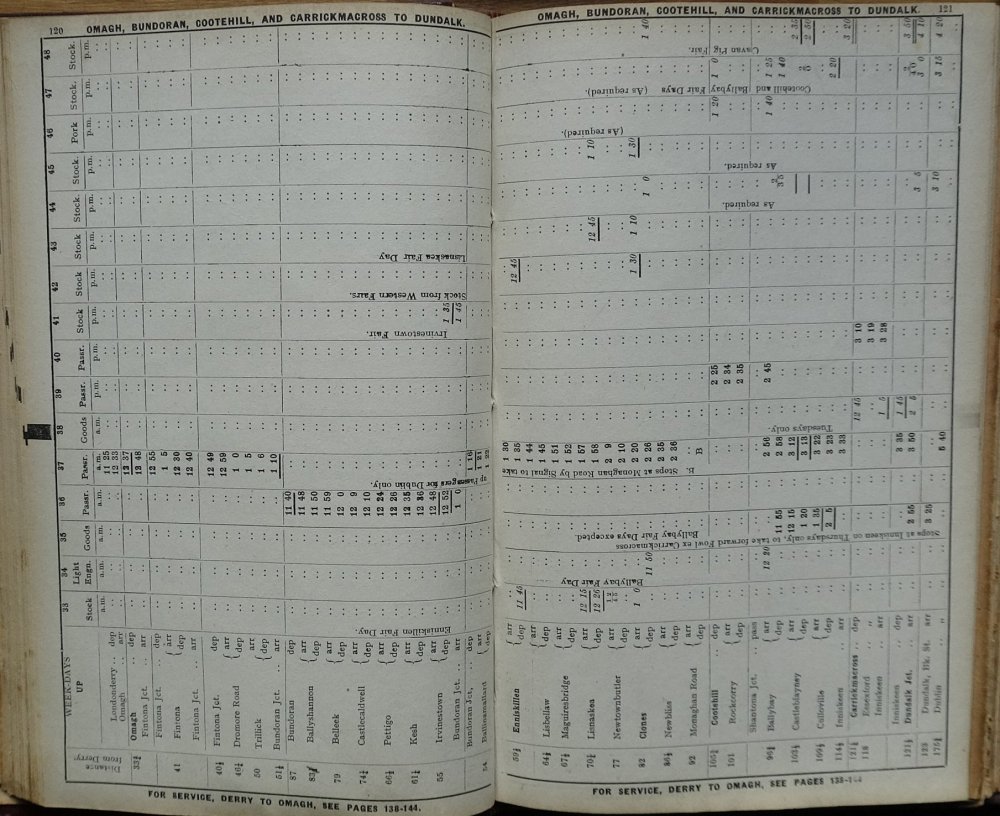 120 OMAGH, BUNDORAN, COOTEHILL, AND CARRICKMACROSS TO DUNDALK.
48 Stock. p.m.
47 Stock. p.m.
46 Pork p.m.
45 Stock. p.m.
44 Stock. p.m.
43 Stock p.m. Lisnaskea Fair Day
42 Stock p.m. Stock from Western Fairs.
41 Stock p.m. Irvinestown Fair. 1 35 1 45
40 Passr. p.m.
39 Passr. p.m.
38 Goods a.m.
37 Passr. a.m. 11 25 12 33 12 37 12 48 12 55 1 5 12 30 12 40 12 49 12 59 1 0 1 5 1 6 1 10 1 16 1 21 1 22
up Passengers for Dublin only.
36 Passr. a.m. 11 40 11 48 11 50 11 59 12 0 12 9 12 10 12 24 12 26 12 35 12 36 12 48 12 52 1 0
35 Goods a.m.
34 Light Engn. a.m.
33 Stock a.m. Enniskillen Fair Day.
WEEK-DAYS
UP
Londonderry .. dep
Omagh .. arr
33¾ Omagh .. dep
Fintona Jct. .. arr
Fintona Jct. .. dep
41 Fintona arr dep
Fintona Jct. .. arr
40¼ Fintona Jct. dep
46½ Dromore Road arr dep
50 Trillick arr dep
Bundoran Jct. arr
87 Bundoran dep
Ballyshannon arr dep
79 Belleek arr dep
Castlecaldwell arr dep
Pettigo arr dep
Kesh arr dep
55 Irvinestown arr dep
Bundoran Jct. .. arr
Bundoran Jct. .. dep
54 Ballinamallard arr dep
Distance from Derry.
FOR SERVICE, DERRY TO OMAGH, SEE PAGES 138-144.
OMAGH, BUNDORAN, COOTEHILL, AND CARRICKMACROSS TO DUNDALK. 121
1 40 Cavan Pig Fair. 2 35 2 50 3 20 3 50 4 10 4 20
Cootehill and Ballybay Fair Days (As required). 1 0 1 25 1 40 2 20 3 0 3 15
1 20 1 40
(As required). 1 10 1 30
As required.
1 0 3 5 3 10
As required.
12 45 1 10
12 45 1 30
3 10 3 19 3 28
2 25 2 34 2 35 2 45
Tuesdays only. 12 45 1 5 1 45 2 5
1 30 1 35 1 44 1 45 1 51 1 52 1 57 1 58 2 9 2 10 2 20 2 26 2 35 2 36 B 2 56 2 58 3 12 3 13 3 22 3 23 3 33 3 35 3 50 5 40
B. Stops at Monaghan Road by Signal to take
11 55 12 15 1 20 1 35 2 5 2 55 3 25
Ballybay Fair Days excepted.
Stops at Inniskeen on Thursdays only, to take forward Fowl ex Carrickmacross
11 50 12 20
Ballybay Fair Day
11 45 12 15 12 26 1 0
59½ Enniskillen arr dep
Lisbellaw arr dep
Maguiresbridge arr dep
Lisnaskea arr dep
77 Newtownbutler arr dep
82 Clones arr dep
Newbliss arr dep
92 Monaghan Road arr dep
Cootehill .. dep
101 Rockcorry arr dep
Shantona Jct. pass
Ballybay arr dep
Castleblayney arr dep
Culloville arr dep
Inniskeen arr
Carrickmacross .. dep
118 Essexford
Inniskeen arr
Inniskeen dep
Dundalk Jct. arr dep
Dundalk, Bk. St. arr
Dublin "
FOR SERVICE, DERRY TO OMAGH, SEE PAGES 138-144